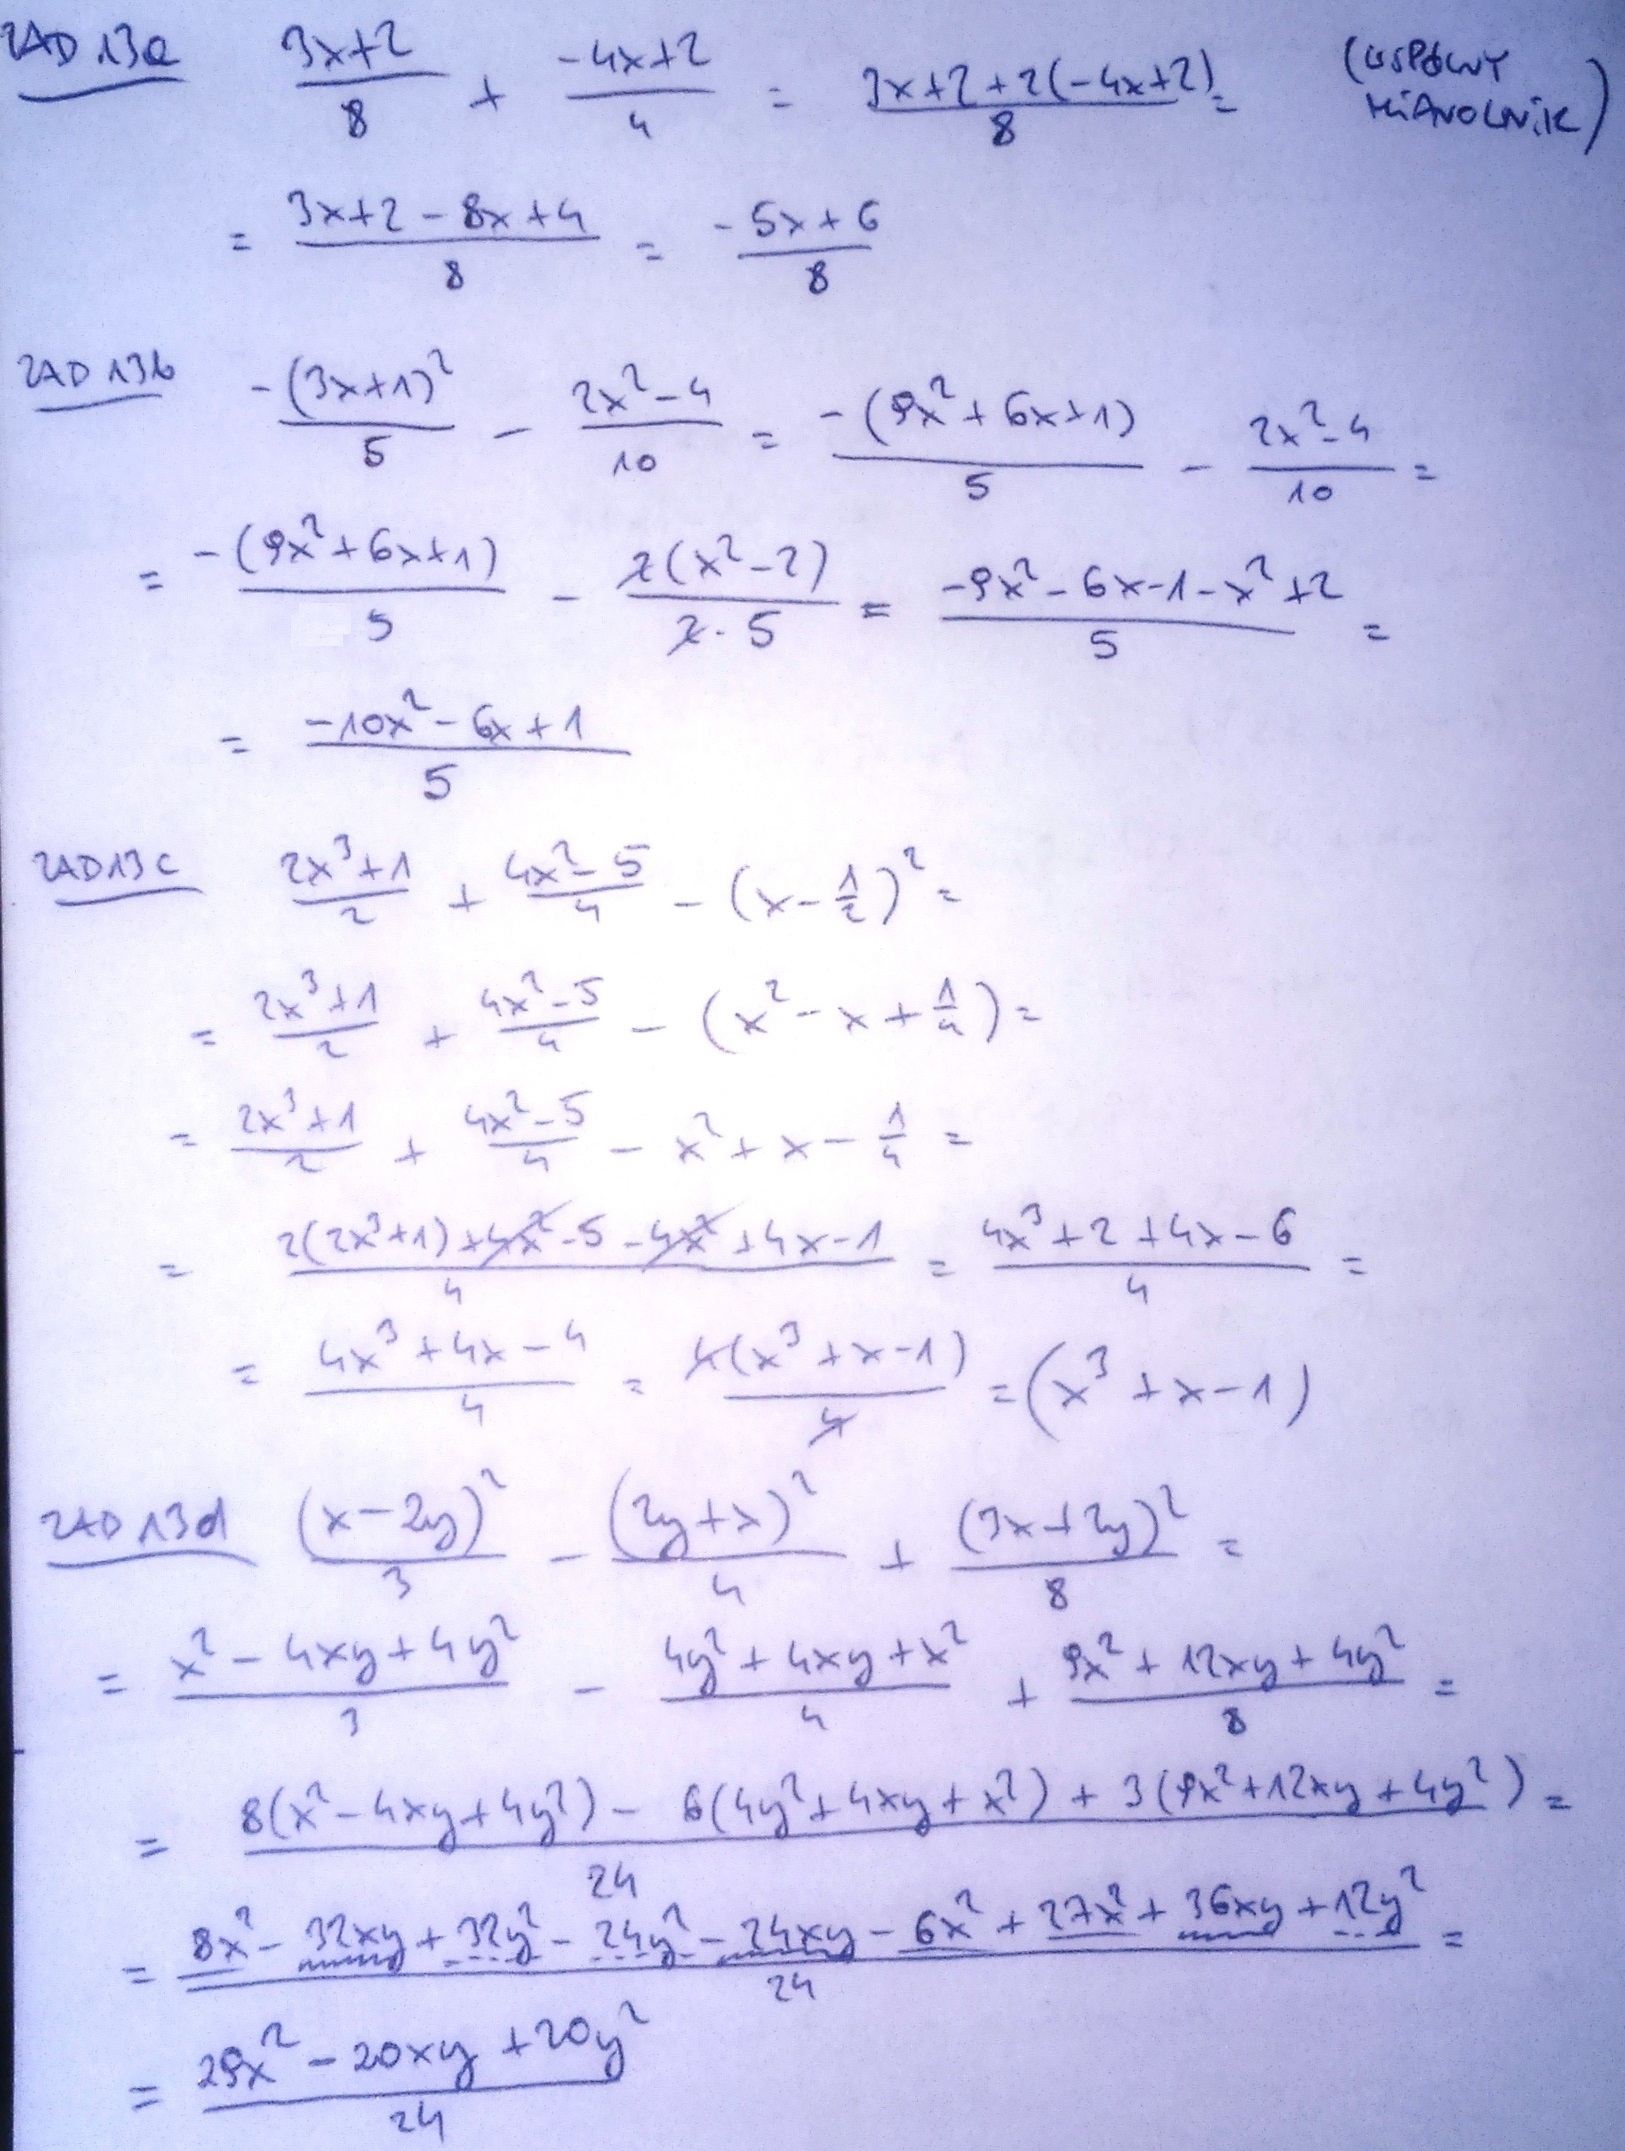 ZAD 13a (3x+2)/8 + (-4x+2)/4 = (3x+2+2(-4x+2))/8 = (WSPÓLNY MIANOWNIK)
= (3x+2-8x+4)/8 = (-5x+6)/8
ZAD 13b (-(3x+1)²)/5 - (2x²-4)/10 = (-(9x²+6x+1))/5 - (2x²-4)/10 =
= (-(9x²+6x+1))/5 - (2(x²-2))/(2·5) = (-9x²-6x-1-x²+2)/5 =
= (-10x²-6x+1)/5
ZAD 13c (2x³+1)/2 + (4x²-5)/4 - (x-1/2)² =
= (2x³+1)/2 + (4x²-5)/4 - (x²-x+1/4) =
= (2x³+1)/2 + (4x²-5)/4 - x²+x-1/4 =
= (2(2x³+1)+4x²-5-4x²+4x-1)/4 = (4x³+2+4x-6)/4 =
= (4x³+4x-4)/4 = (4(x³+x-1))/4 = (x³+x-1)
ZAD 13d (x-2y)²/3 - (2y+x)²/4 + (3x+2y)²/8 =
= (x²-4xy+4y²)/3 - (4y²+4xy+x²)/4 + (9x²+12xy+4y²)/8 =
= (8(x²-4xy+4y²) - 6(4y²+4xy+x²) + 3(9x²+12xy+4y²))/24 =
= (8x²-32xy+32y²-24y²-24xy-6x²+27x²+36xy+12y²)/24 =
= (29x²-20xy+20y²)/24